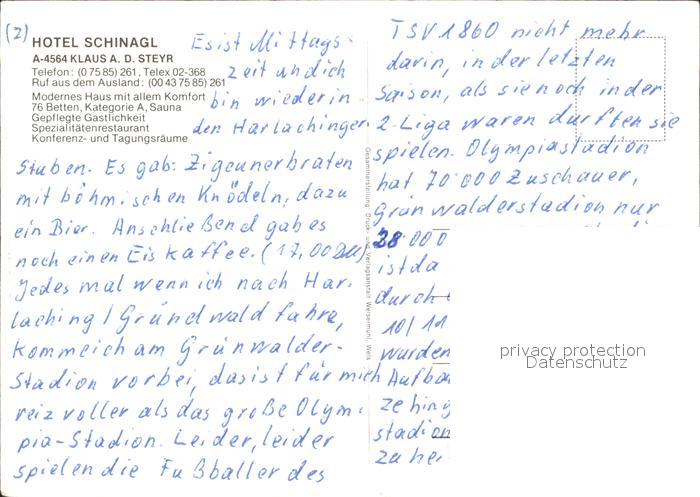 (2)
HOTEL SCHINAGL
A-4564 KLAUS A. D. STEYR
Telefon: (0 75 85) 261, Telex 02-368
Ruf aus dem Ausland: (00 43 75 85) 261
Modernes Haus mit allem Komfort
76 Betten, Kategorie A, Sauna
Gepflegte Gastlichkeit
Spezialitätenrestaurant
Konferenz- und Tagungsräume
Es ist Mittags-
zeit und ich
bin wieder in
den Harlachinger
Stuben. Es gab: Zigeunerbraten
mit böhmischen Knödeln, dazu
ein Bier. Anschließend gab es
noch einen Eiskaffee. (17,00 DM)
Jedes mal wenn ich nach Har-
laching / Gründwald fahre,
komme ich am Grünwalder-
Stadion vorbei, das ist für mich
reizvoller als das große Olym-
pia-Stadion. Leider, leider
spielen die Fußballer des
Gesamtherstellung: Druck- und Verlagsanstalt Welsermühl, Wels
TSV 1860 nicht mehr
darin, in der letzten
Saison, als sie noch in der
2. Liga waren durften sie
spielen. Olympiastadion
hat 70 000 Zuschauer,
Grünwalderstadion nur
38 000
ist da
durch
10/11
wurden
Aufbau
ze hing
stadion
zu hei
privacy protection
Datenschutz